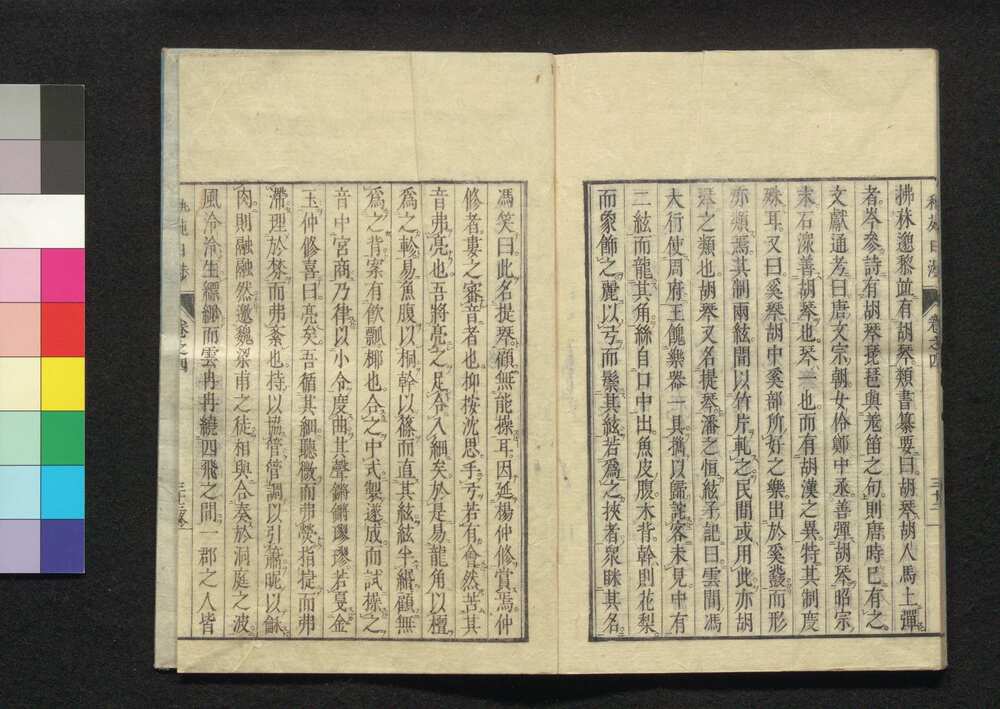 拂菻邈黎竝有胡琴類書纂要曰胡琴胡人馬上彈
者岑參詩有胡琴琵琶與羗笛之句則唐時已有之
文獻通考曰唐文宗朝女伶鄭中丞善彈胡琴昭宗
末石潨善胡琴也琴一也而有胡漢之異特其制度
殊耳又曰奚琴胡中奚部所好之樂出於奚鼗而形
亦類焉其制兩絃間以竹片軋之民間或用此亦胡
琴之類也胡琴又名提琴潘之恒絃矛記曰雲間馮
大行使周府王餽樂器一具猶以詫客未見中有
二絃而龍其角絲自口中出魚皮腹木背幹則花梨
而象飾之麗以弓而鬃其絃若爲之挾者眾昧其名
卷之四
馮笑曰此名提琴顧無能操耳因延楊仲修賞焉仲
修者婁之審音者也抑按沈思手弓若有會然苦其
音弗亮也吾將亮之足合入細矣於是易龍角以檀
爲之軫易魚腹以桐幹以篠而直其絃絃半纒顧無
爲之背案有飲瓢椰也合之中式製遂成而試操之
音中宮商乃律以小令度曲其聲鏘鏘璆璆若戛金
玉仲修喜曰亮矣吾循其細聽微而弗熒指捷而弗
滯理於棼而弗紊也持以協管管調以引簫昵以龢
肉則融融然邀魏梁甫之徒相與合奏於洞庭之波
風泠泠生縹緲而雲冉冉繞四飛之間一郡之人皆
卷之四